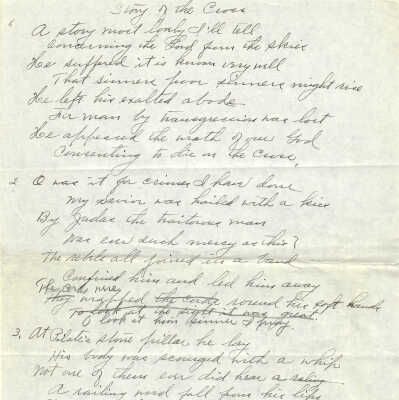 Story of the Cross
A story most lovly I'll tell
Concerning the Lord from the skies
He suffered it is known very well
That sinners poor sinners might rise
He left his exalted abode
For man by transgression was lost
He appeased the wrath of our God
Consenting to die on the Cross,
2. O was it for crimes I have done
My Savior was hailed with a kiss
By Judas the traitorous man
Was ever such mercy as this?
The rebels all joined in a band
Confined him and led him away
The cords were
They wrapped the cords round his soft hands
To look at the sight it was great!
O look at him sinner I pray
3. At Pilate's stone pillar he lay
His body was scourged with a whip
Not one of them ever did hear a railing
A railing word fall from his lips